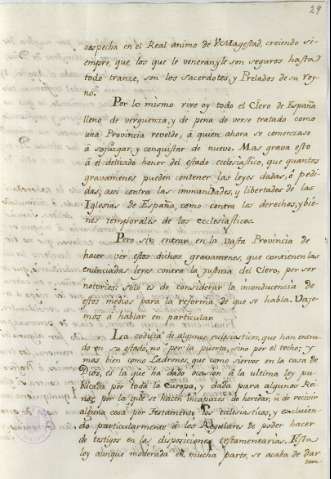 29
sospecha en el Real animo de V. Magestad, creiendo si-
empre, que los que le veneran, y le son seguros hasta
todo trance, son los Sacerdotes, y Prelados de su Rey-
no.
Por lo mismo vive oy todo el Clero de España
lleno de verguenza, y de pena de verse tratado como
una Provincia revelde, á quien ahora se comenzase
á sojuzgar, y conquistar de nuevo. Mas grava esto
á el delicado honor del estado ecclesiastico, que quantos
gravamenes pueden contener las leyes dadas, ó pedi-
das, assi contra las immunidades, y libertades de las
Iglesias de España, como contra los derechos, y bie-
nes temporales de los ecclesiasticos.
Pero sin entrar en la vasta Provincia de
hacer ver estos dichos gravamenes, que contienen las
enunciadas leyes contra la justicia del Clero, por ser
notorios: solo es de considerar la inconducencia de
estos medios para la reforma de que se habla. Vaje-
mos á hablar en particular.
La codicia de algunos ecclesiasticos, que han entra-
do en su estado, no por la puerta, sino por el techo; y
mas bien como Ladrones, que como siervos en la casa de
Dios, es la que ha dado ocasion á la ultima ley pu-
blicada por toda la Europa, y dada para algunos Rei-
nos, por la que se hacen incapaces de heredar, ni de recivir
alguna cosa por testamento, los ecclesiasticos, y excluien-
do particularmente á los Regulares de poder hacer
de testigos en las disposiciones testamentarias. Esta
ley aunque moderada en mucha parte, se acaba de dar